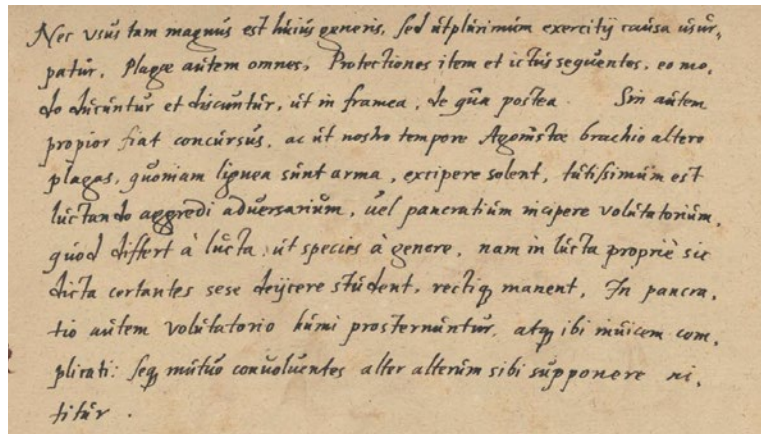 Nec vsus tam magnus est huius generis, sed utplurimum exercitij causa usur,
patur, Plagæ autem omnes, Protectiones item et ictus sequentes, eo mo,
do ducuntur et discuntur, ut in framea, de qua postea. Sin autem
propior fiat concursus, ac ut nostro tempore Agonistæ brachio altero
plagas, quoniam lignea sunt arma, excipere solent, tutissimum est
luctando aggredi aduersarium, uel pancratium incipere volutatorium,
quod differt à lucta: ut species à genere, nam in lucta propriè sic
dicta certantes sese deijcere student, rectiq; manent, In pancra,
tio autem volutatorio humi prosternuntur, atq; ibi inuicem com,
plicati: seq; mutuo conuoluentes alter alterum sibi supponere ni,
titur.